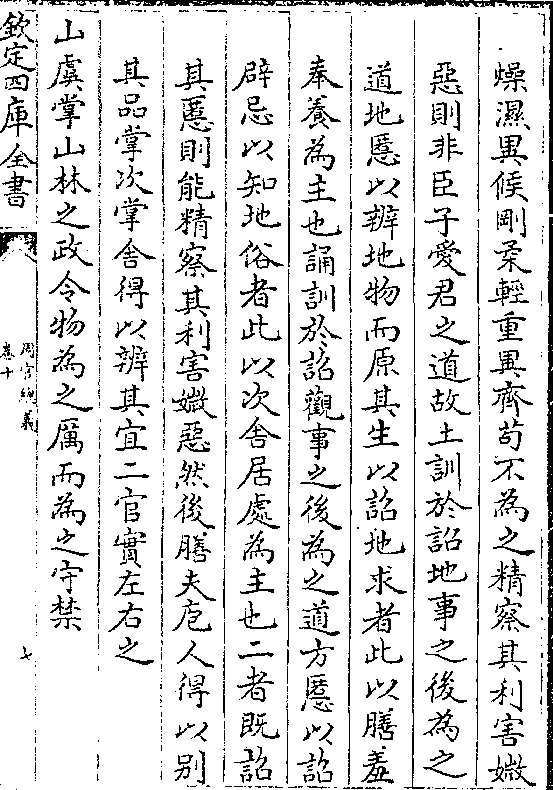 燥濕異候剛柔輕重異齊茍不為之精察其利害媺
惡則非臣子愛君之道故土訓於詔地事之後為之
道地慝以辨地物而原其生以詔地求者此以膳羞
奉養為主也誦訓於詔觀事之後為之道方慝以詔
辟忌以知地俗者此以次舍居處為主也二者既詔
其慝則能精察其利害媺惡然後膳夫庖人得以别
其品掌次掌舍得以辨其宜二官實左右之
山虞掌山林之政令物為之厲而為之守禁
欽定四庫全書
周官總義
卷十
七